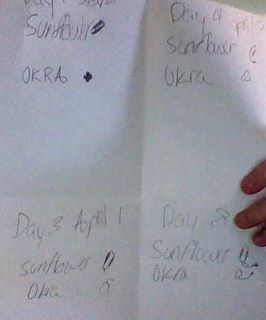 Day
Sunflower
OKRA
Day 4
Sunflower
Okra
Day 3 April 1
Sunflower
Okra
Day
Sunflower
OKra